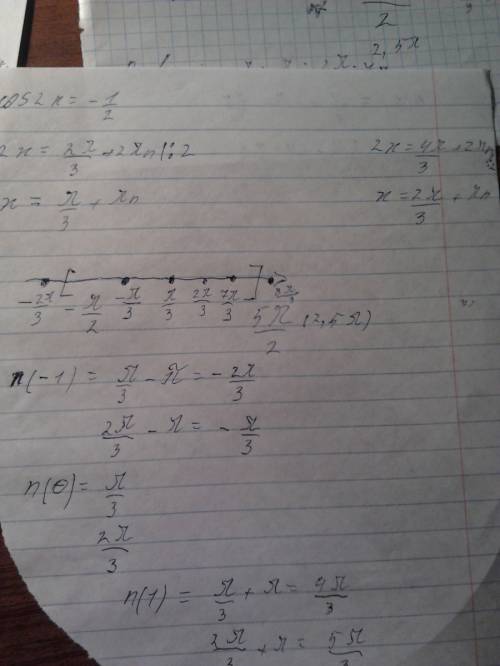 2
2,5π
cos2x = -1/2
2x = 2π/3 + 2πn |: 2
2x = 4π/3 + 2πn
x = π/3 + πn
x = 2π/3 + πn
-2π/3 [ -π/2 -π/3 π/3 2π/3 7π/3 ] 8π/3
5π/2 (2,5π)
n(-1) = π/3 - π = -2π/3
2π/3 - π = -π/3
n(0) = π/3
2π/3
n(1) = π/3 + π = 4π/3
2π/3 + π = 5π/3